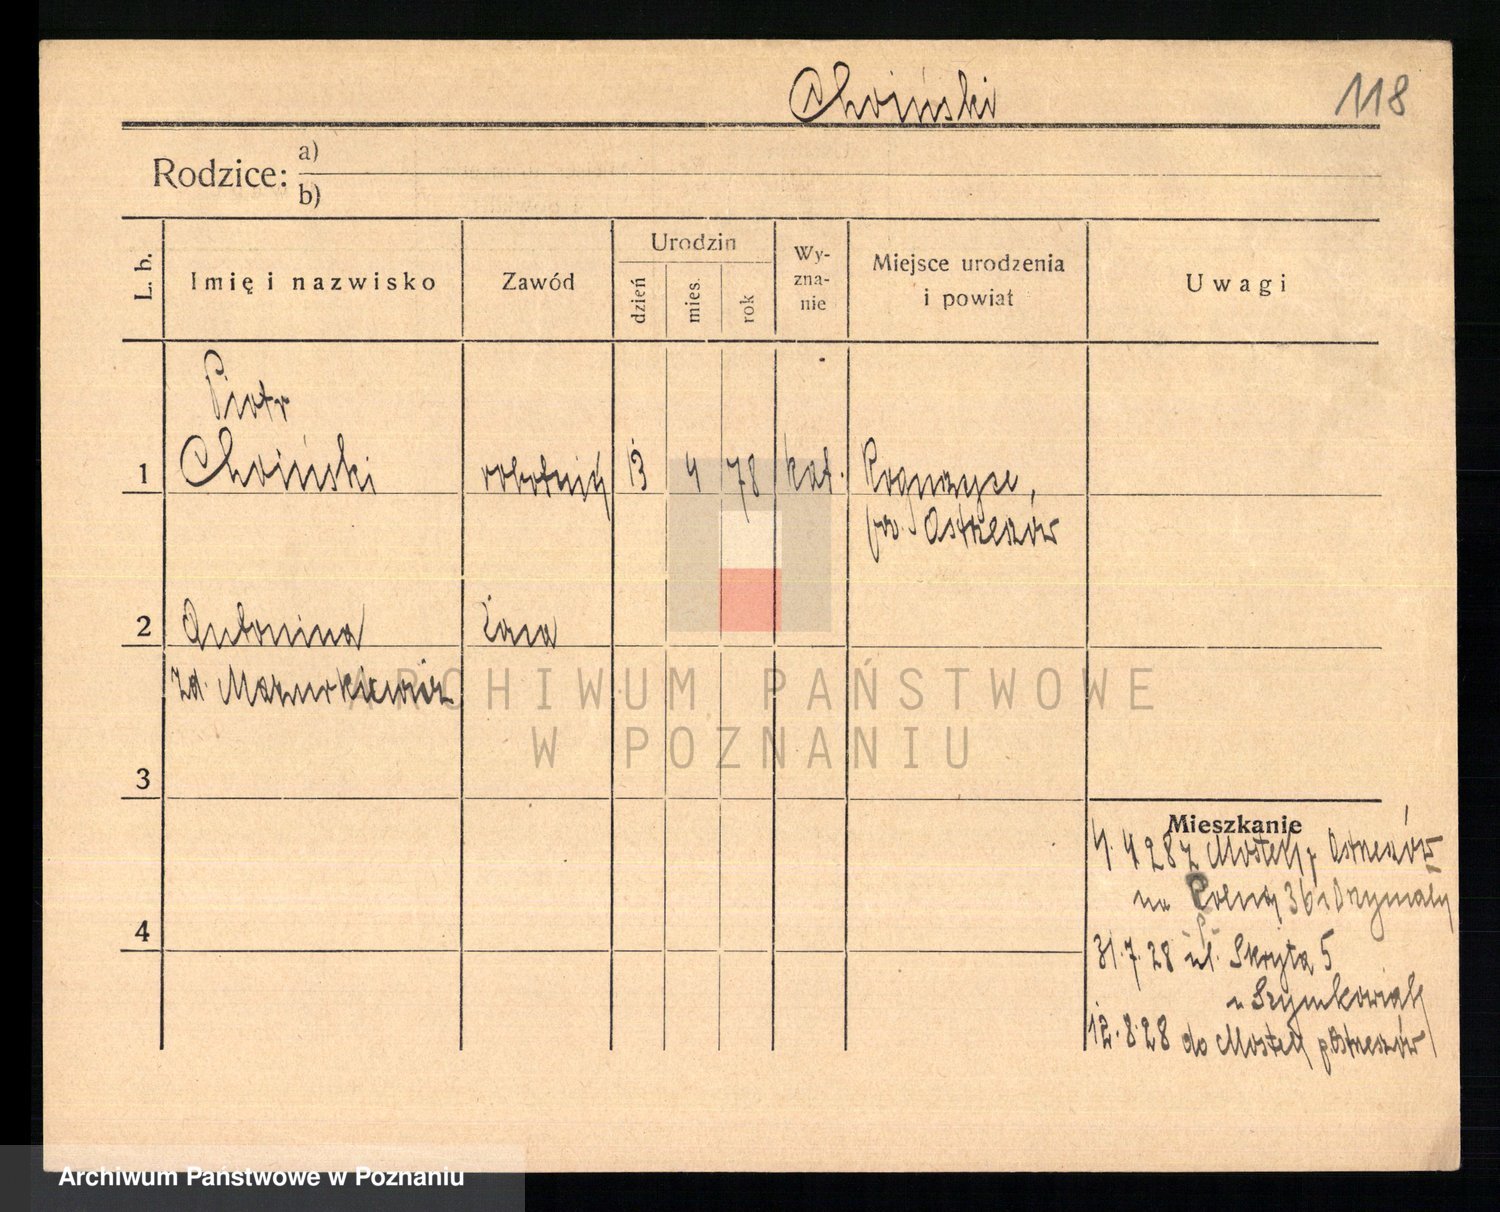 Choiński
118
Rodzice:
a)
b)
L. b.
Imię i nazwisko
Zawód
Urodzin
dzień
mies.
rok
Wy-
zna-
nie
Miejsce urodzenia
i powiat
Uwagi
Piotr
1 Choiński robotnik 13 4 78 kat.
pow. Ostrzeszów
2 Antonina żona
zd. Mazurkiewicz
3
4
Mieszkanie
4. 4 28 z p Ostrzeszów
na Polną 36 u Drzymały
31.7.28 ul. Skryta 5
u Szymkowiak
12.8.28 do p Ostrzeszów
ARCHIWUM PAŃSTWOWE
W POZNANIU
Archiwum Państwowe w Poznaniu